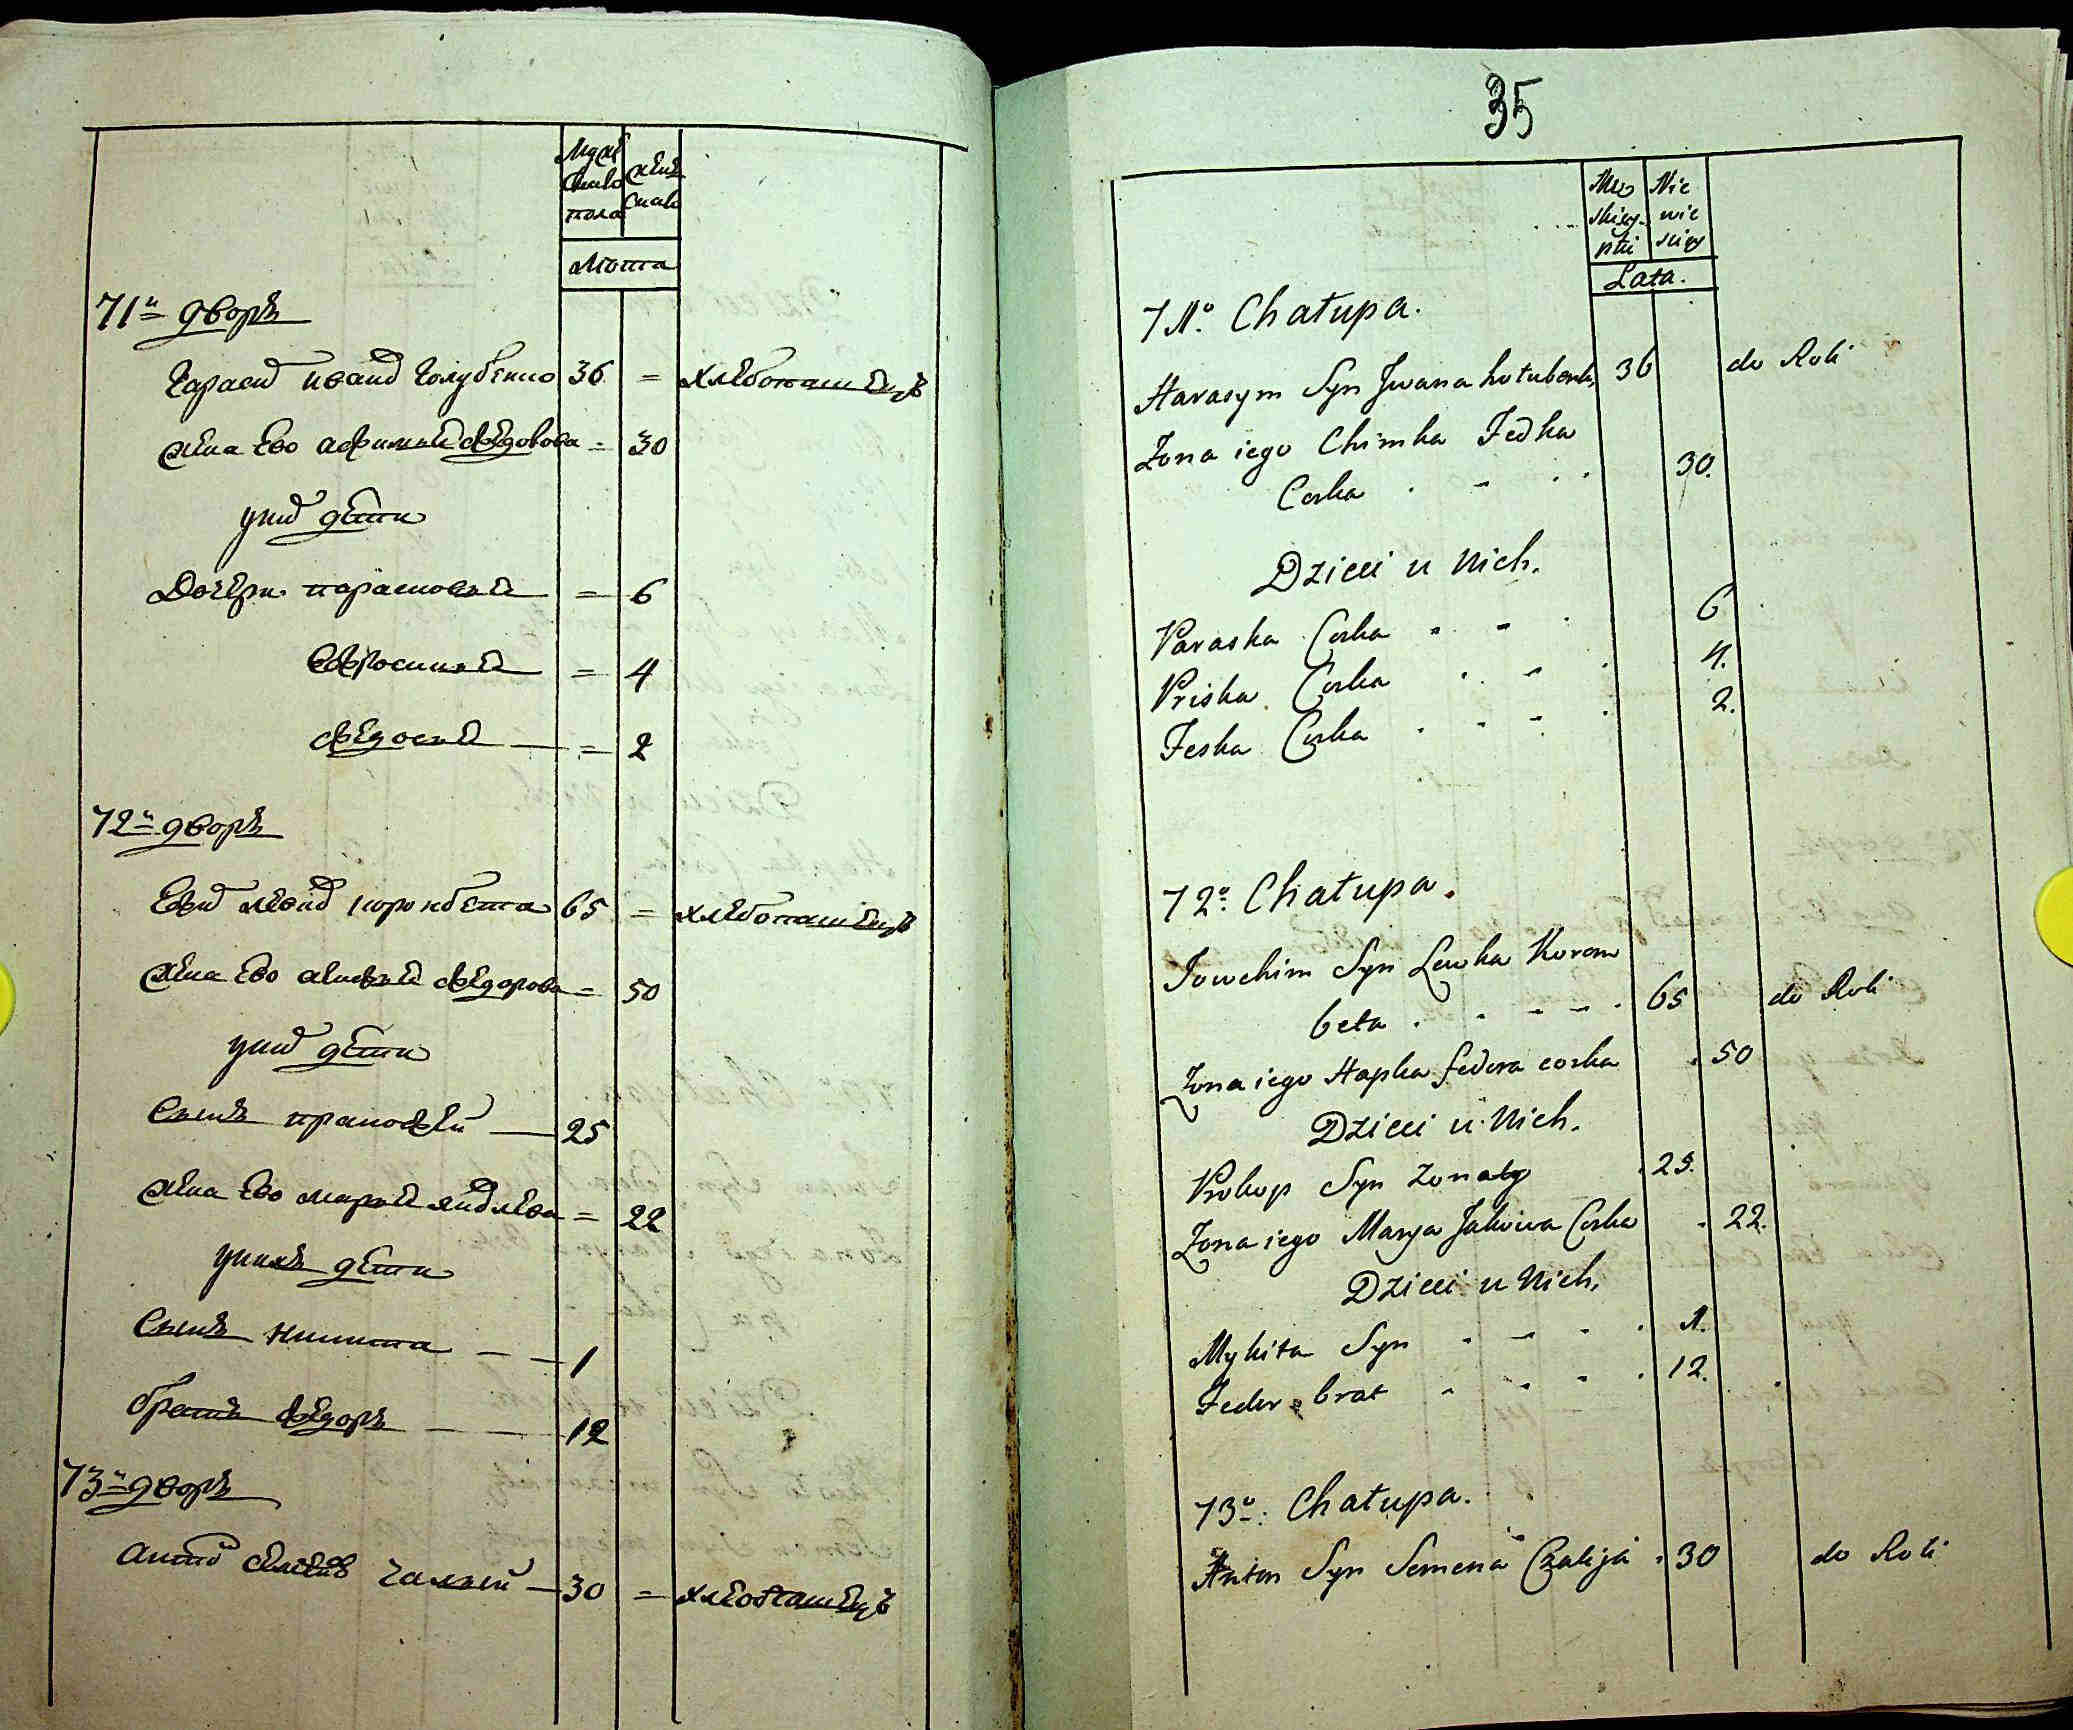 Муже
ска
пола
женс
ска
лѣта
71й дворъ
Гарасим иванов Голубенко 36 = хлебопашецъ
Жена ево афимия федорова = 30
у них дети
Дочери парасковия = 6
евфросиния = 4
федосия — = 2
72й дворъ
Еким левков коронбета 65 = хлебопашецъ
Жена ево агафия федорова = 50
у них дети
Сынъ прокофей — 25
Жена ево мария яковлева = 22
у нихъ дети
Сынъ никита — — 1
братъ федоръ — — 12
73й дворъ
антон семенов чалый — 30 = хлебопашецъ
35
Męz
skiey
płci
Nie
wie
skiey
Lata.
71º. Chałupa.
Harasym Syn Jwana hołubenk 36 do Roli
Zona iego Chimka Fedka
Corka . - . . 30.
Dzieci u Nich.
Paraska Corka . - . 6
Priska Corka . - . 4.
Feska Corka . - - . 2.
72º. Chałupa.
Jowchim Syn Lewka Korom
beta . - - - . 65 do Roli
Zona iego Hapka fedora corka . 50
Dzieci u Nich.
Prokop Syn zonaty . 25.
Zona iego Marya Jakowa Corka . 22.
Dzieci u Nich.
Mykita Syn . - . . 1.
Fedor brat . . - . 12.
73º. Chałupa.
Anton Syn Semena Czalija . 30 do Roli